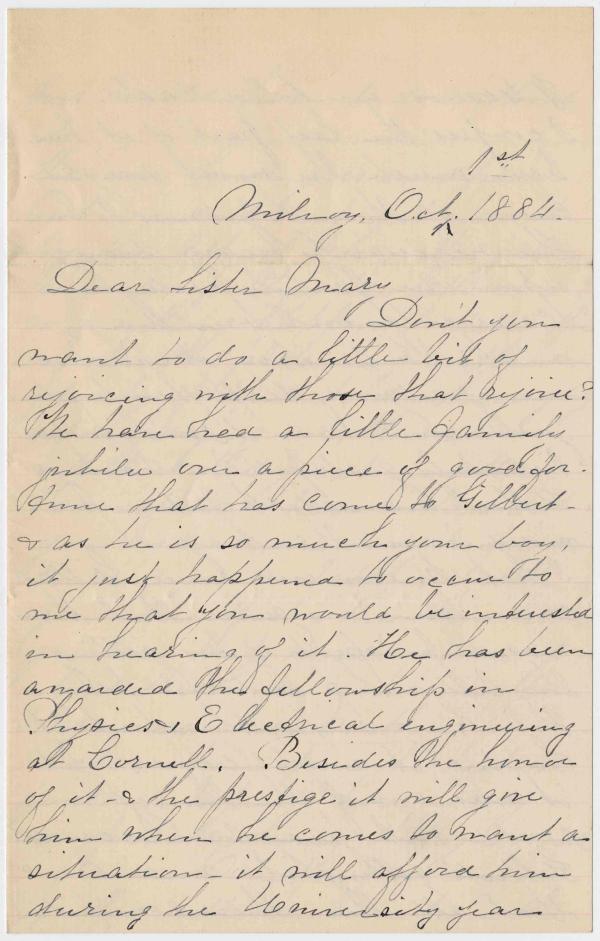 1st
Milroy, Oct. ^ 1884.
Dear Sister Mary
Don't you
want to do a little bit of
rejoicing with those that rejoice?
We have had a little family
jubilee over a piece of good for-
tune that has come to Gilbert -
& as he is so much your boy,
it just happened to occur to
me that you would be interested
in hearing of it. He has been
awarded the fellowship in
Physics & Electrical engineering
at Cornell. Besides the honor
of it - & the prestige it will give
him when he comes to want a
situation - it will afford him
during the University year